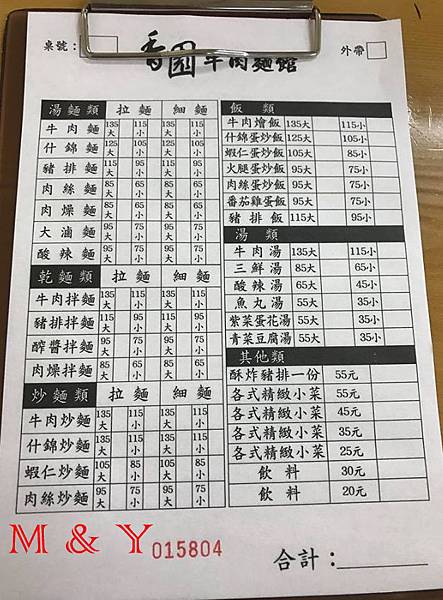 桌號：
香園牛肉麵館
外帶
湯麵類 拉麵 細麵
牛肉麵 135大 115小 135大 115小
什錦麵 125大 105小 125大 105小
豬排麵 115大 95小 115大 95小
肉絲麵 85大 65小 85大 65小
肉燥麵 85大 65小 85大 65小
大滷麵 95大 75小 95大 75小
酸辣麵 95大 75小 95大 75小
乾麵類 拉麵 細麵
牛肉拌麵 135大 115小 135大 115小
豬排拌麵 115大 95小 115大 95小
醡醬拌麵 95大 75小 95大 75小
肉燥拌麵 85大 65小 85大 65小
炒麵類 拉麵 細麵
牛肉炒麵 135大 115小 135大 115小
什錦炒麵 135大 115小 135大 115小
蝦仁炒麵 105大 85小 105大 85小
肉絲炒麵 95大 75小 95大 75小
飯類
牛肉燴飯 135大 115小
什錦蛋炒飯 125大 105小
蝦仁蛋炒飯 105大 85小
火腿蛋炒飯 95大 75小
肉絲蛋炒飯 95大 75小
番茄雞蛋飯 95大 75小
豬排飯 115大 95小
湯類
牛肉湯 135大 115小
三鮮湯 85大 65小
酸辣湯 65大 45小
魚丸湯 55大 35小
紫菜蛋花湯 55大 35小
青菜豆腐湯 55大 35小
其他類
酥炸豬排一份 55元
各式精緻小菜 55元
各式精緻小菜 45元
各式精緻小菜 35元
各式精緻小菜 25元
飲料 30元
飲料 20元
M & Y
015804
合計：